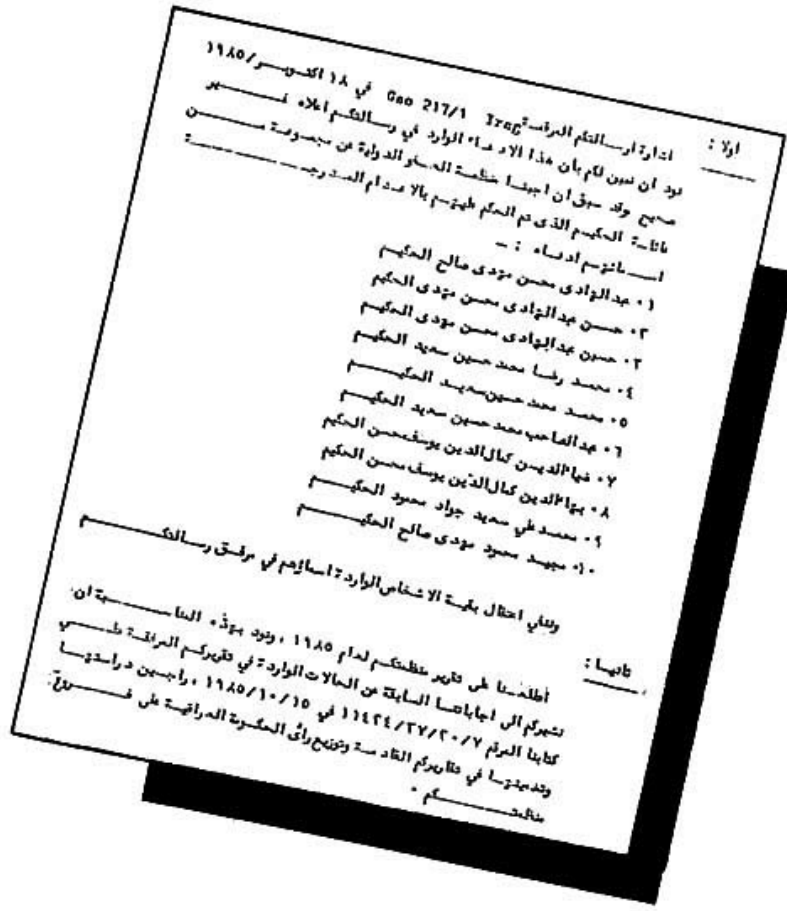 اولا : اشارة لرسالتكم المرقمة Gao 217/1 Iraq في ١٨ اكتوبر/١٩٨٥
نود ان نبين لكم بأن هذا الادعاء الوارد في رسالتكم اعلاه غير
صحيح وقد سبق ان اجبنا منظمة العفو الدولية عن مجموعة من
عائلة الحكيم الذى تم الحكم عليهم بالاعدام المدرجة
اسمائهم ادناه : ــ
٠١ عبدالهادى محسن مهدى صالح الحكيم
٠٢ حسن عبدالهادى محسن مهدى الحكيم
٠٣ حسين عبدالهادى محسن مهدى الحكيم
٠٤ محمد رضا محمد حسين سعيد الحكيم
٠٥ محمد محمد حسين سعيد الحكيم
٠٦ عبدالصاحب محمد حسين سعيد الحكيم
٠٧ ضياءالدين كمال الدين يوسف محسن الحكيم
٠٨ بهاءالدين كمال الدين يوسف محسن الحكيم
٠٩ محمد علي سعيد جواد محمود الحكيم
٠١٠ مجيد محمود مهدى صالح الحكيم
وننفي اعتقال بقية الاشخاص الواردة اسماؤهم في مرفق رسالتكم
ثانيا : أطلعنا على تقرير منظمتكم لعام ١٩٨٥ ، ونود بهذه المناسبة ان
نشيركم الى اجاباتنا السابقة عن الحالات الواردة في تقريركم المرافقة طي
كتابنا المرقم ١١٤٢٤/٢٧/٢٠/٧ في ١٩٨٥/١٠/١٥ ، راجين دراستها
وتضمينها في تقاريركم القادمة وتوزيع رأى الحكومة العراقية على فروع
منظمتكم ٠